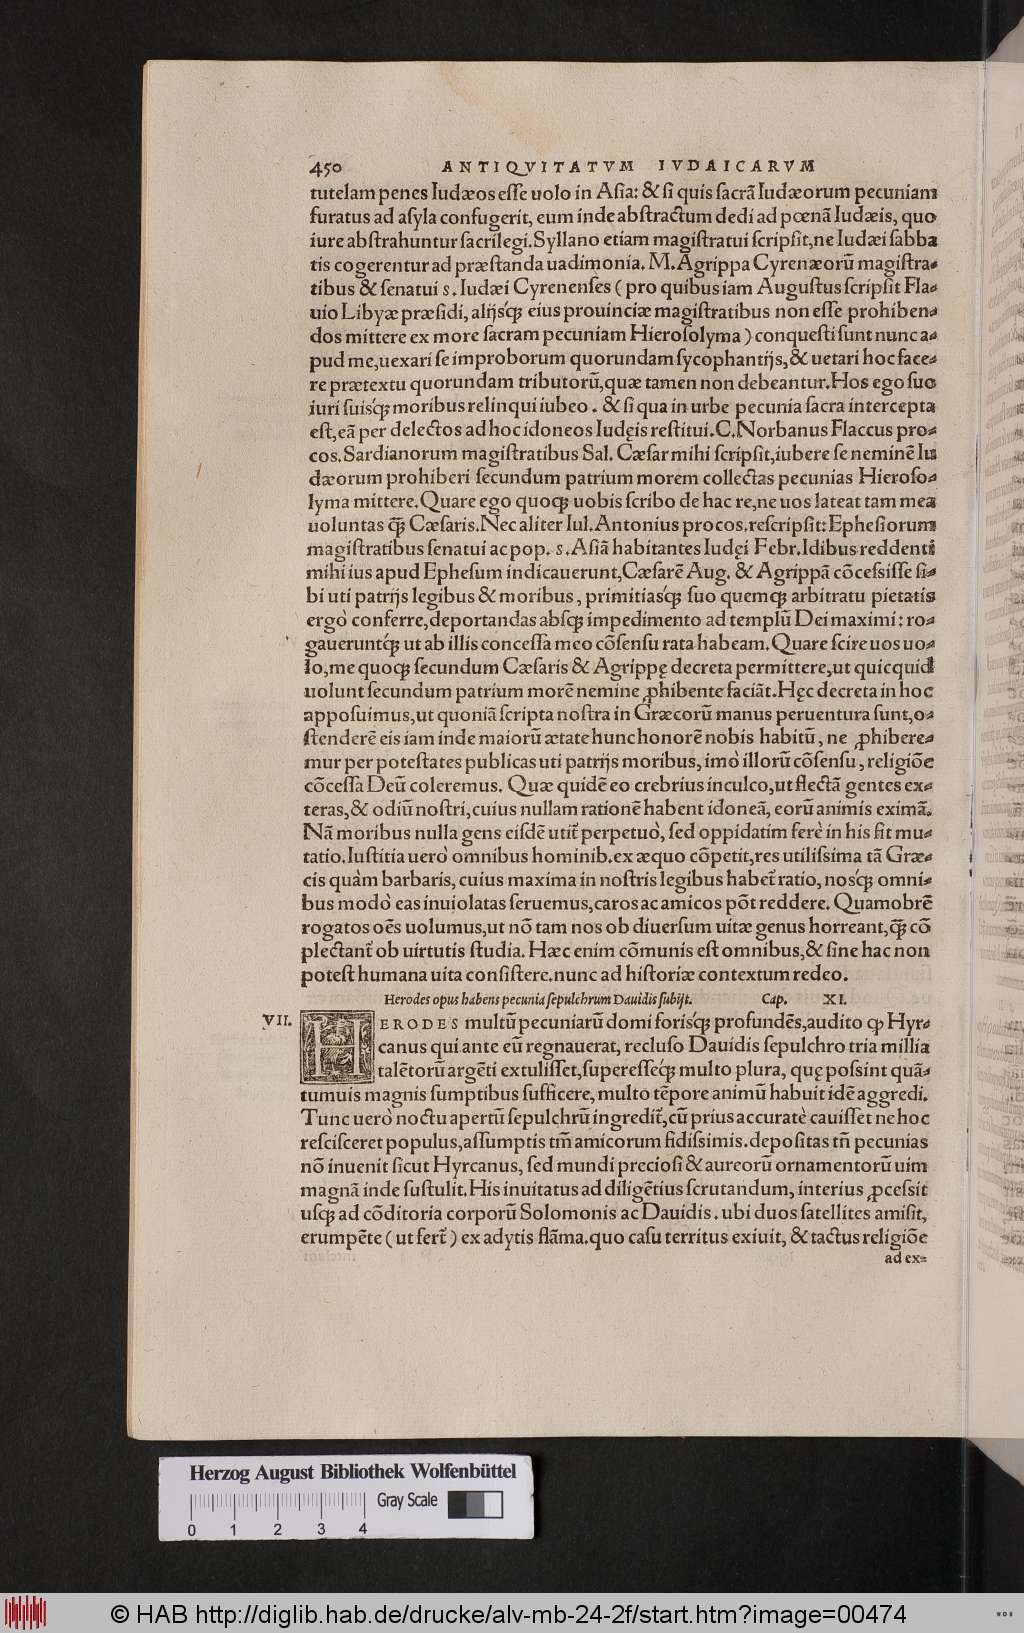 450 ANTIQVITATVM IVDAICARVM
tutelam penes Iudæos eſſe uolo in Aſia: & ſi quis ſacrã Iudæorum pecuniam
furatus ad aſyla confugerit, eum inde abſtractum dedi ad pœnã Iudæis, quo
iure abſtrahuntur ſacrilegi. Syllano etiam magiſtratui ſcripſit, ne Iudæi ſabba
tis cogerentur ad præſtanda uadimonia. M. Agrippa Cyrenæorũ magiſtra-
tibus & ſenatui s. Iudæi Cyrenenſes (pro quibus iam Auguſtus ſcripſit Fla-
uio Libyæ præſidi, alijsq́ꝫ eius prouinciæ magiſtratibus non eſſe prohiben-
dos mittere ex more ſacram pecuniam Hieroſolyma) conqueſti ſunt nunc a-
pud me, uexari ſe improborum quorundam ſycophantijs, & uetari hoc face-
re prætextu quorundam tributorũ, quæ tamen non debeantur. Hos ego ſuo
iuri ſuisq́ꝫ moribus relinqui iubeo. & ſi qua in urbe pecunia ſacra intercepta
eſt, eã per delectos ad hoc idoneos Iudęis reſtitui. C. Norbanus Flaccus pro-
cos. Sardianorum magiſtratibus Sal. Cæſar mihi ſcripſit, iubere ſe neminẽ Iu
dæorum prohiberi ſecundum patrium morem collectas pecunias Hieroſo-
lyma mittere. Quare ego quoqꝫ uobis ſcribo de hac re, ne uos lateat tam mea
uoluntas q̃ꝫ Cæſaris. Nec aliter Iul. Antonius procos. reſcripſit: Epheſiorum
magiſtratibus ſenatui ac pop. s. Aſiã habitantes Iudęi Febr. Idibus reddenti
mihi ius apud Epheſum indicauerunt, Cæſarẽ Aug. & Agrippã cõceſsiſſe ſi-
bi uti patrijs legibus & moribus, primitiasq́ꝫ ſuo quemqꝫ arbitratu pietatis
ergò conferre, deportandas absqꝫ impedimento ad templũ Dei maximi: ro-
gaueruntq́ꝫ ut ab illis conceſſa meo cõſenſu rata habeam. Quare ſcire uos uo-
lo, me quoqꝫ ſecundum Cæſaris & Agrippę decreta permittere, ut quicquid
uolunt ſecundum patrium morẽ nemine ꝓhibente faciãt. Hęc decreta in hoc
appoſuimus, ut quoniã ſcripta noſtra in Græcorũ manus peruentura ſunt, o-
ſtenderẽ eis iam inde maiorũ ætate hunc honorẽ nobis habitũ, ne ꝓhibere-
mur per poteſtates publicas uti patrijs moribus, imò illorũ cõſenſu, religiõe
cõceſſa Deũ coleremus. Quæ quidẽ eo crebrius inculco, ut flectã gentes ex-
teras, & odiũ noſtri, cuius nullam rationẽ habent idoneã, eorũ animis eximã.
Nã moribus nulla gens eiſdẽ utit̃ perpetuò, ſed oppidatim ferè in his fit mu-
tatio. Iuſtitia uerò omnibus hominib. ex æquo cõpetit, res utiliſsima tã Græ-
cis quàm barbaris, cuius maxima in noſtris legibus habet̃ ratio, nosq́ꝫ omni-
bus modò eas inuiolatas ſeruemus, caros ac amicos põt reddere. Quamobrẽ
rogatos oẽs uolumus, ut nõ tam nos ob diuerſum uitæ genus horreant, q̃ꝫ cõ
plectant̃ ob uirtutis ſtudia. Hæc enim cõmunis eſt omnibus, & ſine hac non
poteſt humana uita conſiſtere. nunc ad hiſtoriæ contextum redeo.
Herodes opus habens pecunia ſepulchrum Dauidis ſubijt. Cap. XI.
VII. HERODES multũ pecuniarũ domi forisq́ꝫ profundẽs, audito ꝙ Hyr-
canus qui ante eũ regnauerat, recluſo Dauidis ſepulchro tria millia
talẽtorũ argẽti extuliſſet, ſupereſſeq́ꝫ multo plura, quę poſsint quã-
tumuis magnis ſumptibus ſufficere, multo tẽpore animũ habuit idẽ aggredi.
Tunc uerò noctu apertũ ſepulchrũ ingredit̃, cũ prius accuratè cauiſſet ne hoc
reſciſceret populus, aſſumptis tm̃ amicorum fidiſsimis. depoſitas tñ pecunias
nõ inuenit ſicut Hyrcanus, ſed mundi precioſi & aureorũ ornamentorũ uim
magnã inde ſuſtulit. His inuitatus ad diligẽtius ſcrutandum, interius ꝓceſsit
uſqꝫ ad cõditoria corporũ Solomonis ac Dauidis. ubi duos ſatellites amiſit,
erumpẽte (ut fert̃) ex adytis flãma. quo caſu territus exiuit, & tactus religiõe
ad ex-
Herzog August Bibliothek Wolfenbüttel
Gray Scale
0 1 2 3 4
© HAB http://diglib.hab.de/drucke/alv-mb-24-2f/start.htm?image=00474